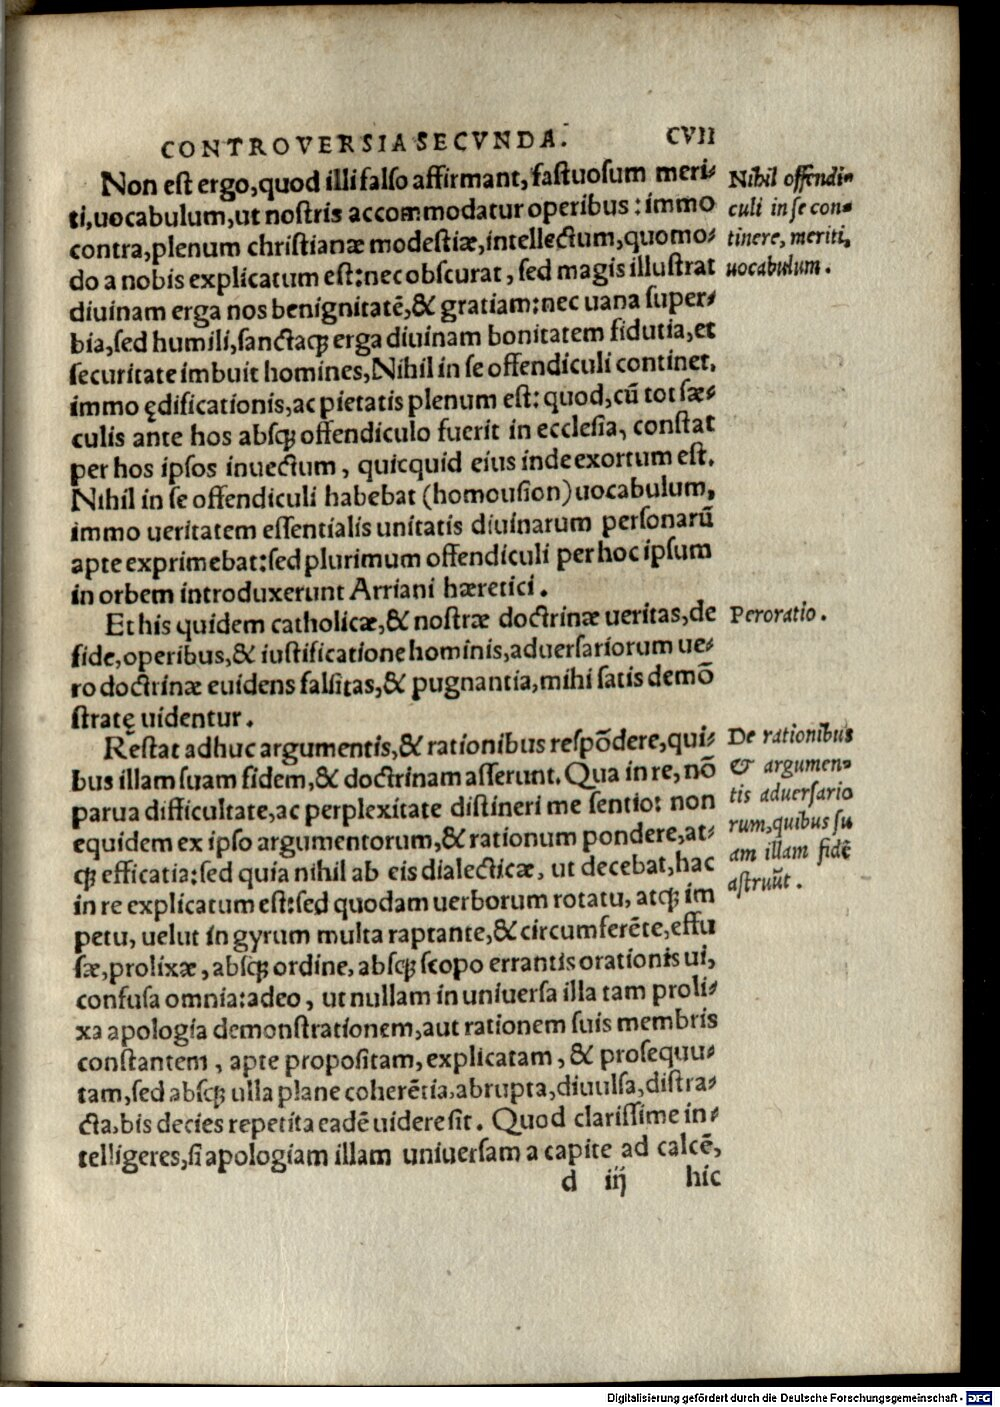 CONTROVERSIA SECVNDA. CVII
Non est ergo, quod illi falso affirmant, fastuosum meri-
ti, uocabulum, ut nostris accommodatur operibus: immo
contra, plenum christianæ modestiæ, intellectum, quomo-
do a nobis explicatum est: nec obscurat, sed magis illustrat
diuinam erga nos benignitatē, & gratiam: nec uana super-
bia, sed humili, sanctaqꝫ erga diuinam bonitatem fidutia, et
securitate imbuit homines, Nihil in se offendiculi continet,
immo ędificationis, ac pietatis plenum est: quod, cū tot sæ-
culis ante hos absqꝫ offendiculo fuerit in ecclesia, constat
per hos ipsos inuectum, quicquid eius inde exortum est.
Nihil in se offendiculi habebat (homousion) uocabulum,
immo ueritatem essentialis unitatis diuinarum personarū
apte exprimebat: sed plurimum offendiculi per hoc ipsum
in orbem introduxerunt Arriani hæretici.
Et his quidem catholicæ, & nostræ doctrinæ ueritas, de
fide, operibus, & iustificatione hominis, aduersariorum ue-
ro doctrinæ euidens falsitas, & pugnantia, mihi satis demō
stratę uidentur.
Restat adhuc argumentis, & rationibus respōdere, qui-
bus illam suam fidem, & doctrinam asserunt. Qua in re, nō
parua difficultate, ac perplexitate distineri me sentio: non
equidem ex ipso argumentorum, & rationum pondere, at-
qꝫ efficatia: sed quia nihil ab eis dialecticæ, ut decebat, hac
in re explicatum est: sed quodam uerborum rotatu, atqꝫ im
petu, uelut in gyrum multa raptante, & circumferēte, effu
sæ, prolixæ, absqꝫ ordine, absqꝫ scopo errantis orationis ui,
confusa omnia: adeo, ut nullam in uniuersa illa tam proli-
xa apologia demonstrationem, aut rationem suis membris
constantem, apte propositam, explicatam, & prosequu-
tam, sed absqꝫ ulla plane coherētia, abrupta, diuulsa, distra-
cta, bis decies repetita eadē uidere sit. Quod clarissime in-
telligeres, si apologiam illam uniuersam a capite ad calcē,
d iij hic
Nihil offendi-
culi in se con-
tinere, meriti,
uocabulum.
Peroratio.
De rationibus
& argumen-
tis aduersario
rum, quibus su
am illam fidē
astruūt.
Digitalisierung gefördert durch die Deutsche Forschungsgemeinschaft - DFG